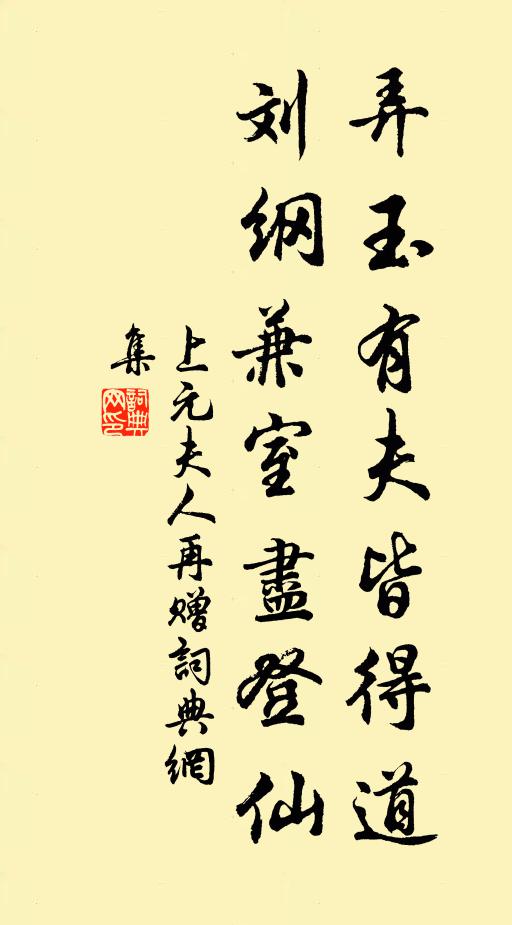 弄玉有夫皆得道
刘纲兼室盡登仙
上元夫人再赠詞典網
集
詞典
网印